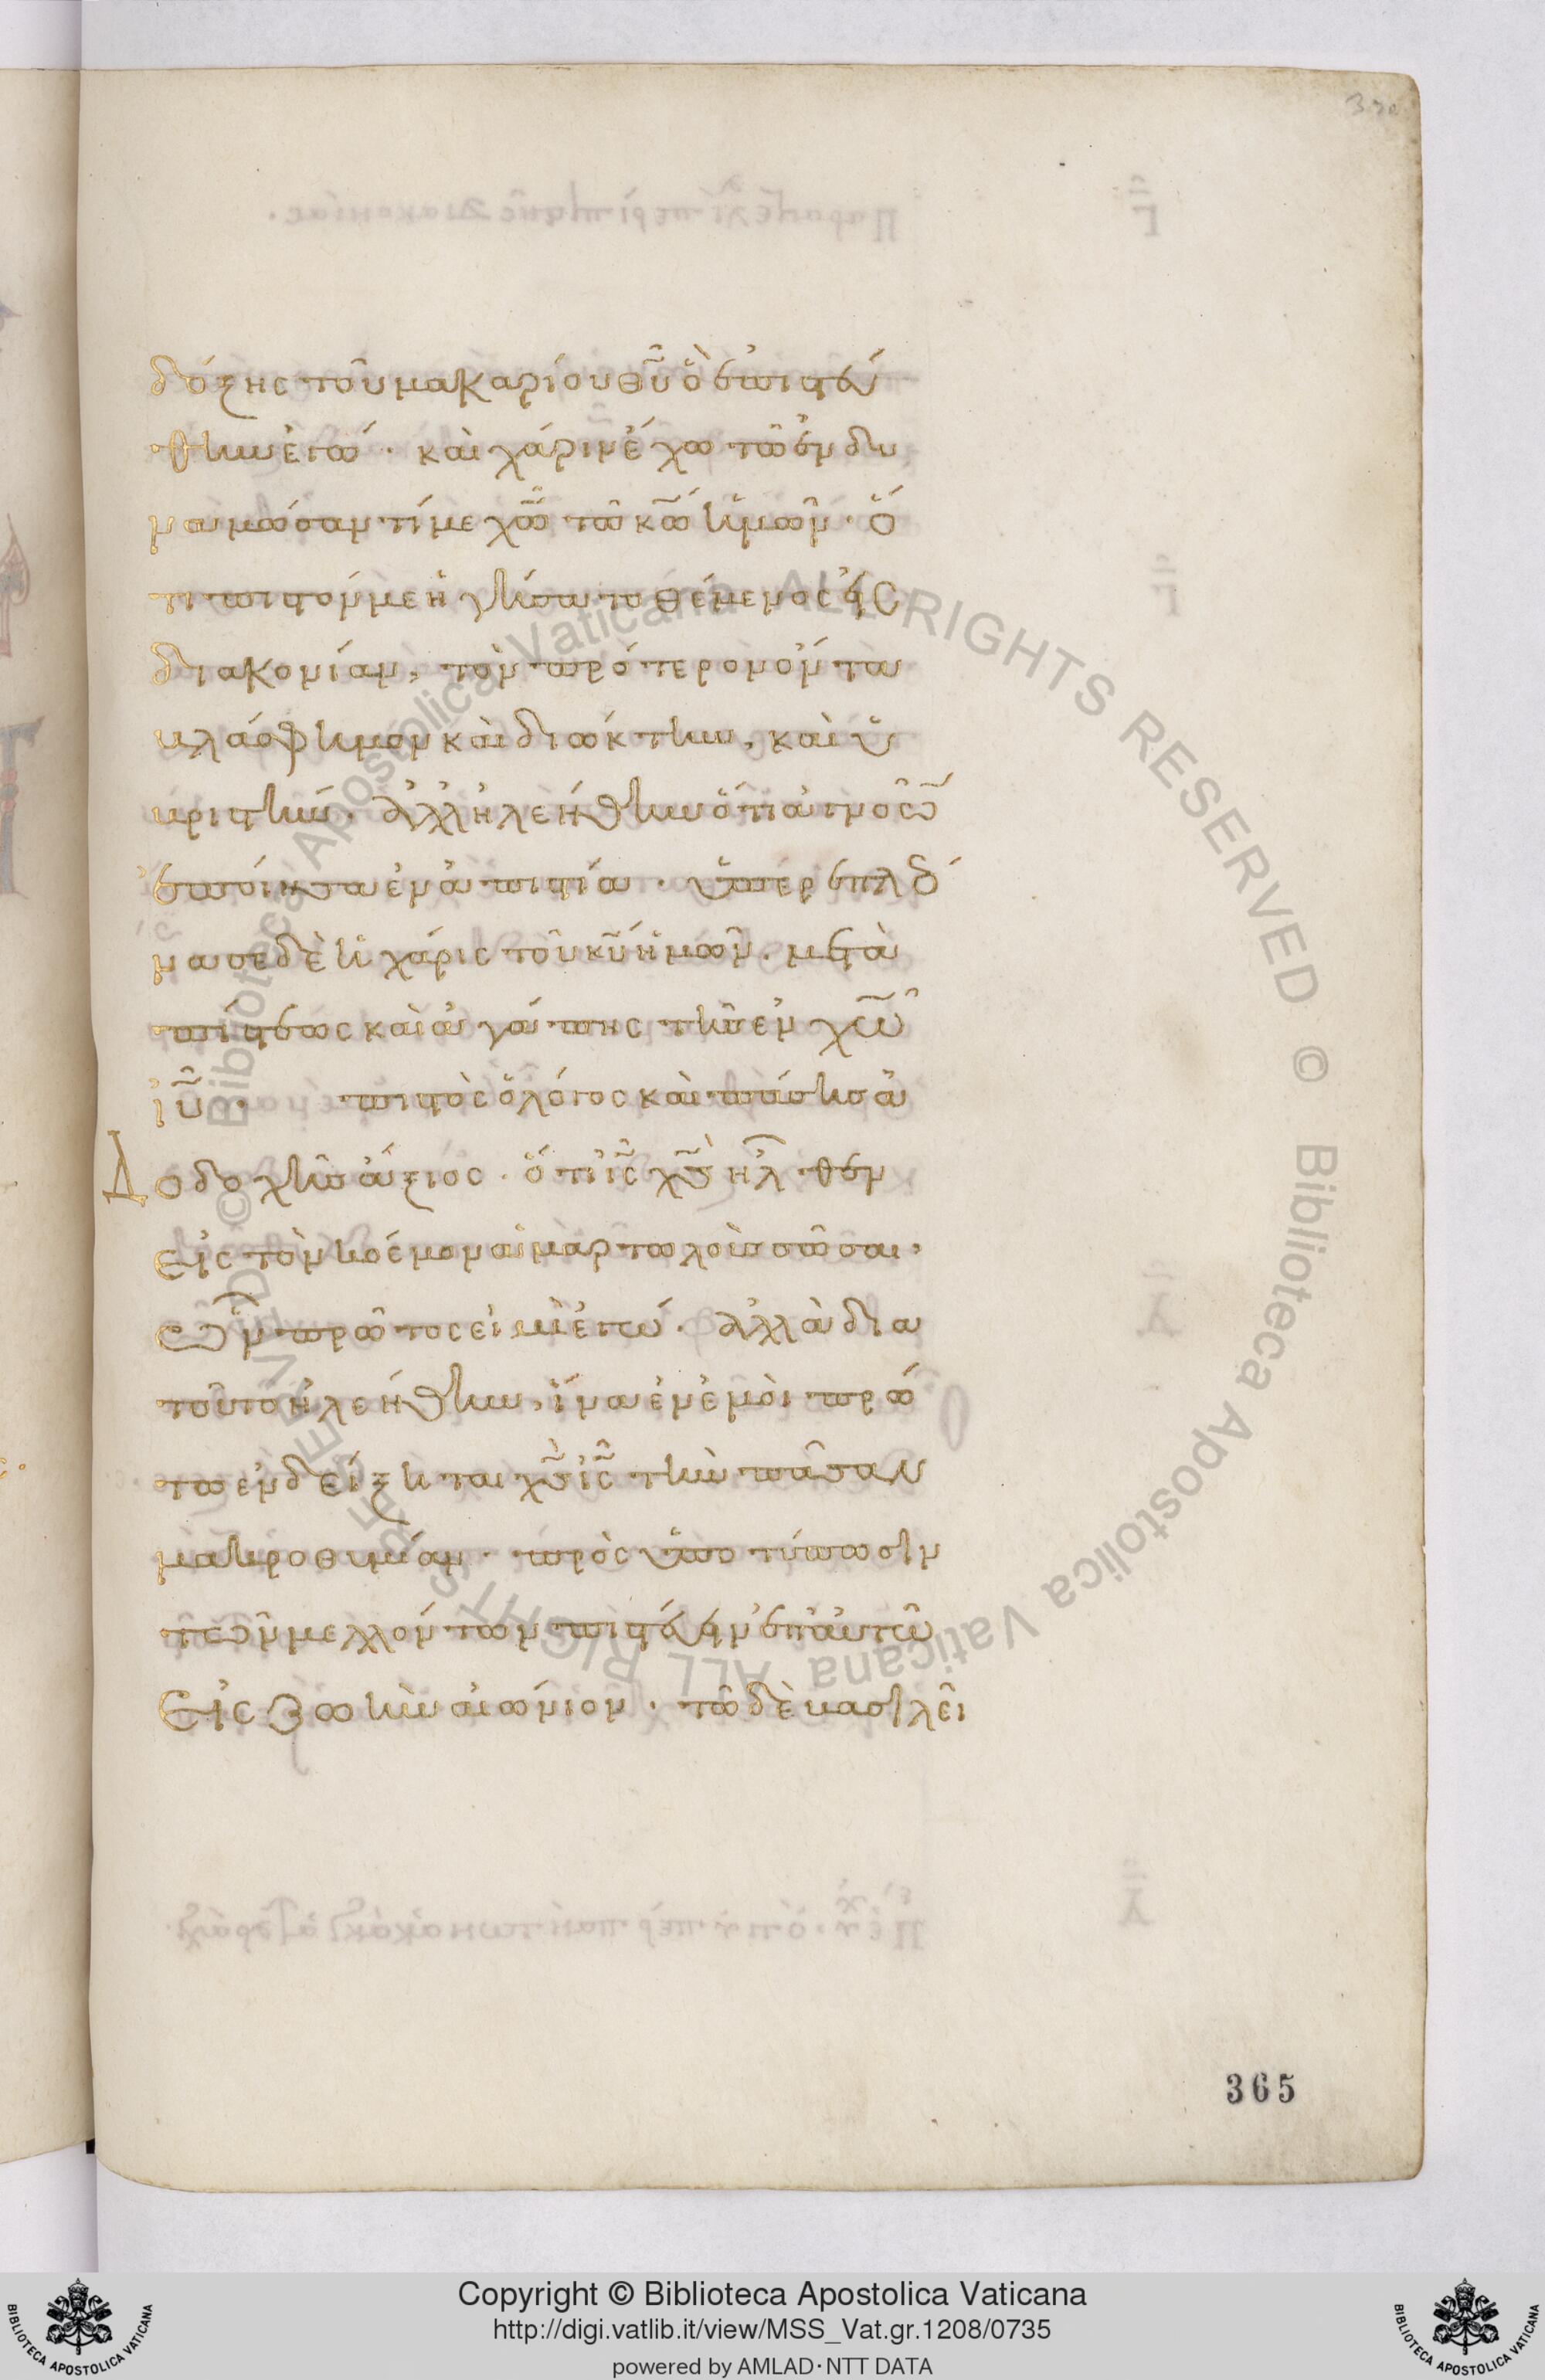 δόξης τοῦ μακαρίου θῦ ὃ ἐπιστεύ
θην ἐγώ · καὶ χάριν ἔχω τῶ ἐνδυ
ναμώσαντί με χῶ ἰῦ τῶ κῶ ἡμῶν · ὅ
τι πιστόν με ἡγήσατο θέμενος εἰς
διακονίαν, τὸν πρότερον ὄντα
βλάσφημον καὶ διώκτην, καὶ ὑ
βριστήν · ἀλλ' ἠλεήθην ὅτι ἀγνοῶν
ἐποίησα ἐν ἀπιστία · ὑπερεπλεό
νασε δὲ ἡ χάρις τοῦ κῦ ἡμῶν · μετὰ
πίστεως καὶ ἀγάπης τῆς ἐν χῶ
ἰῦ · πιστὸς ὁ λόγος καὶ πάσης ἀ
ποδοχῆς ἄξιος · ὅτι ἰς χς ἦλθεν
εἰς τὸν κόσμον ἁμαρτωλοὺς σῶσαι ·
ὧν πρῶτος εἰμὶ ἐγώ · ἀλλὰ δια
τοῦτο ἠλεήθην, ἵνα ἐν ἐμοὶ πρώ
τω ἐνδείξηται χς ἰς τὴν πᾶσαν
μακροθυμίαν · πρὸς ὑποτύπωσιν
τῶν μελλόντων πιστεύειν ἐπ' αὐτῶ
εἰς ζωὴν αἰώνιον · τῶ δὲ βασιλεῖ
365
Copyright © Biblioteca Apostolica Vaticana
http://digi.vatlib.it/view/MSS_Vat.gr.1208/0735
powered by AMLAD·NTT DATA
BIBLIOTECA APOSTOLICA VATICANA
BIBLIOTECA APOSTOLICA VATICANA
© Biblioteca Apostolica Vaticana ALL RIGHTS RESERVED © Biblioteca Apostolica Vaticana ALL RIGHTS RESERVED